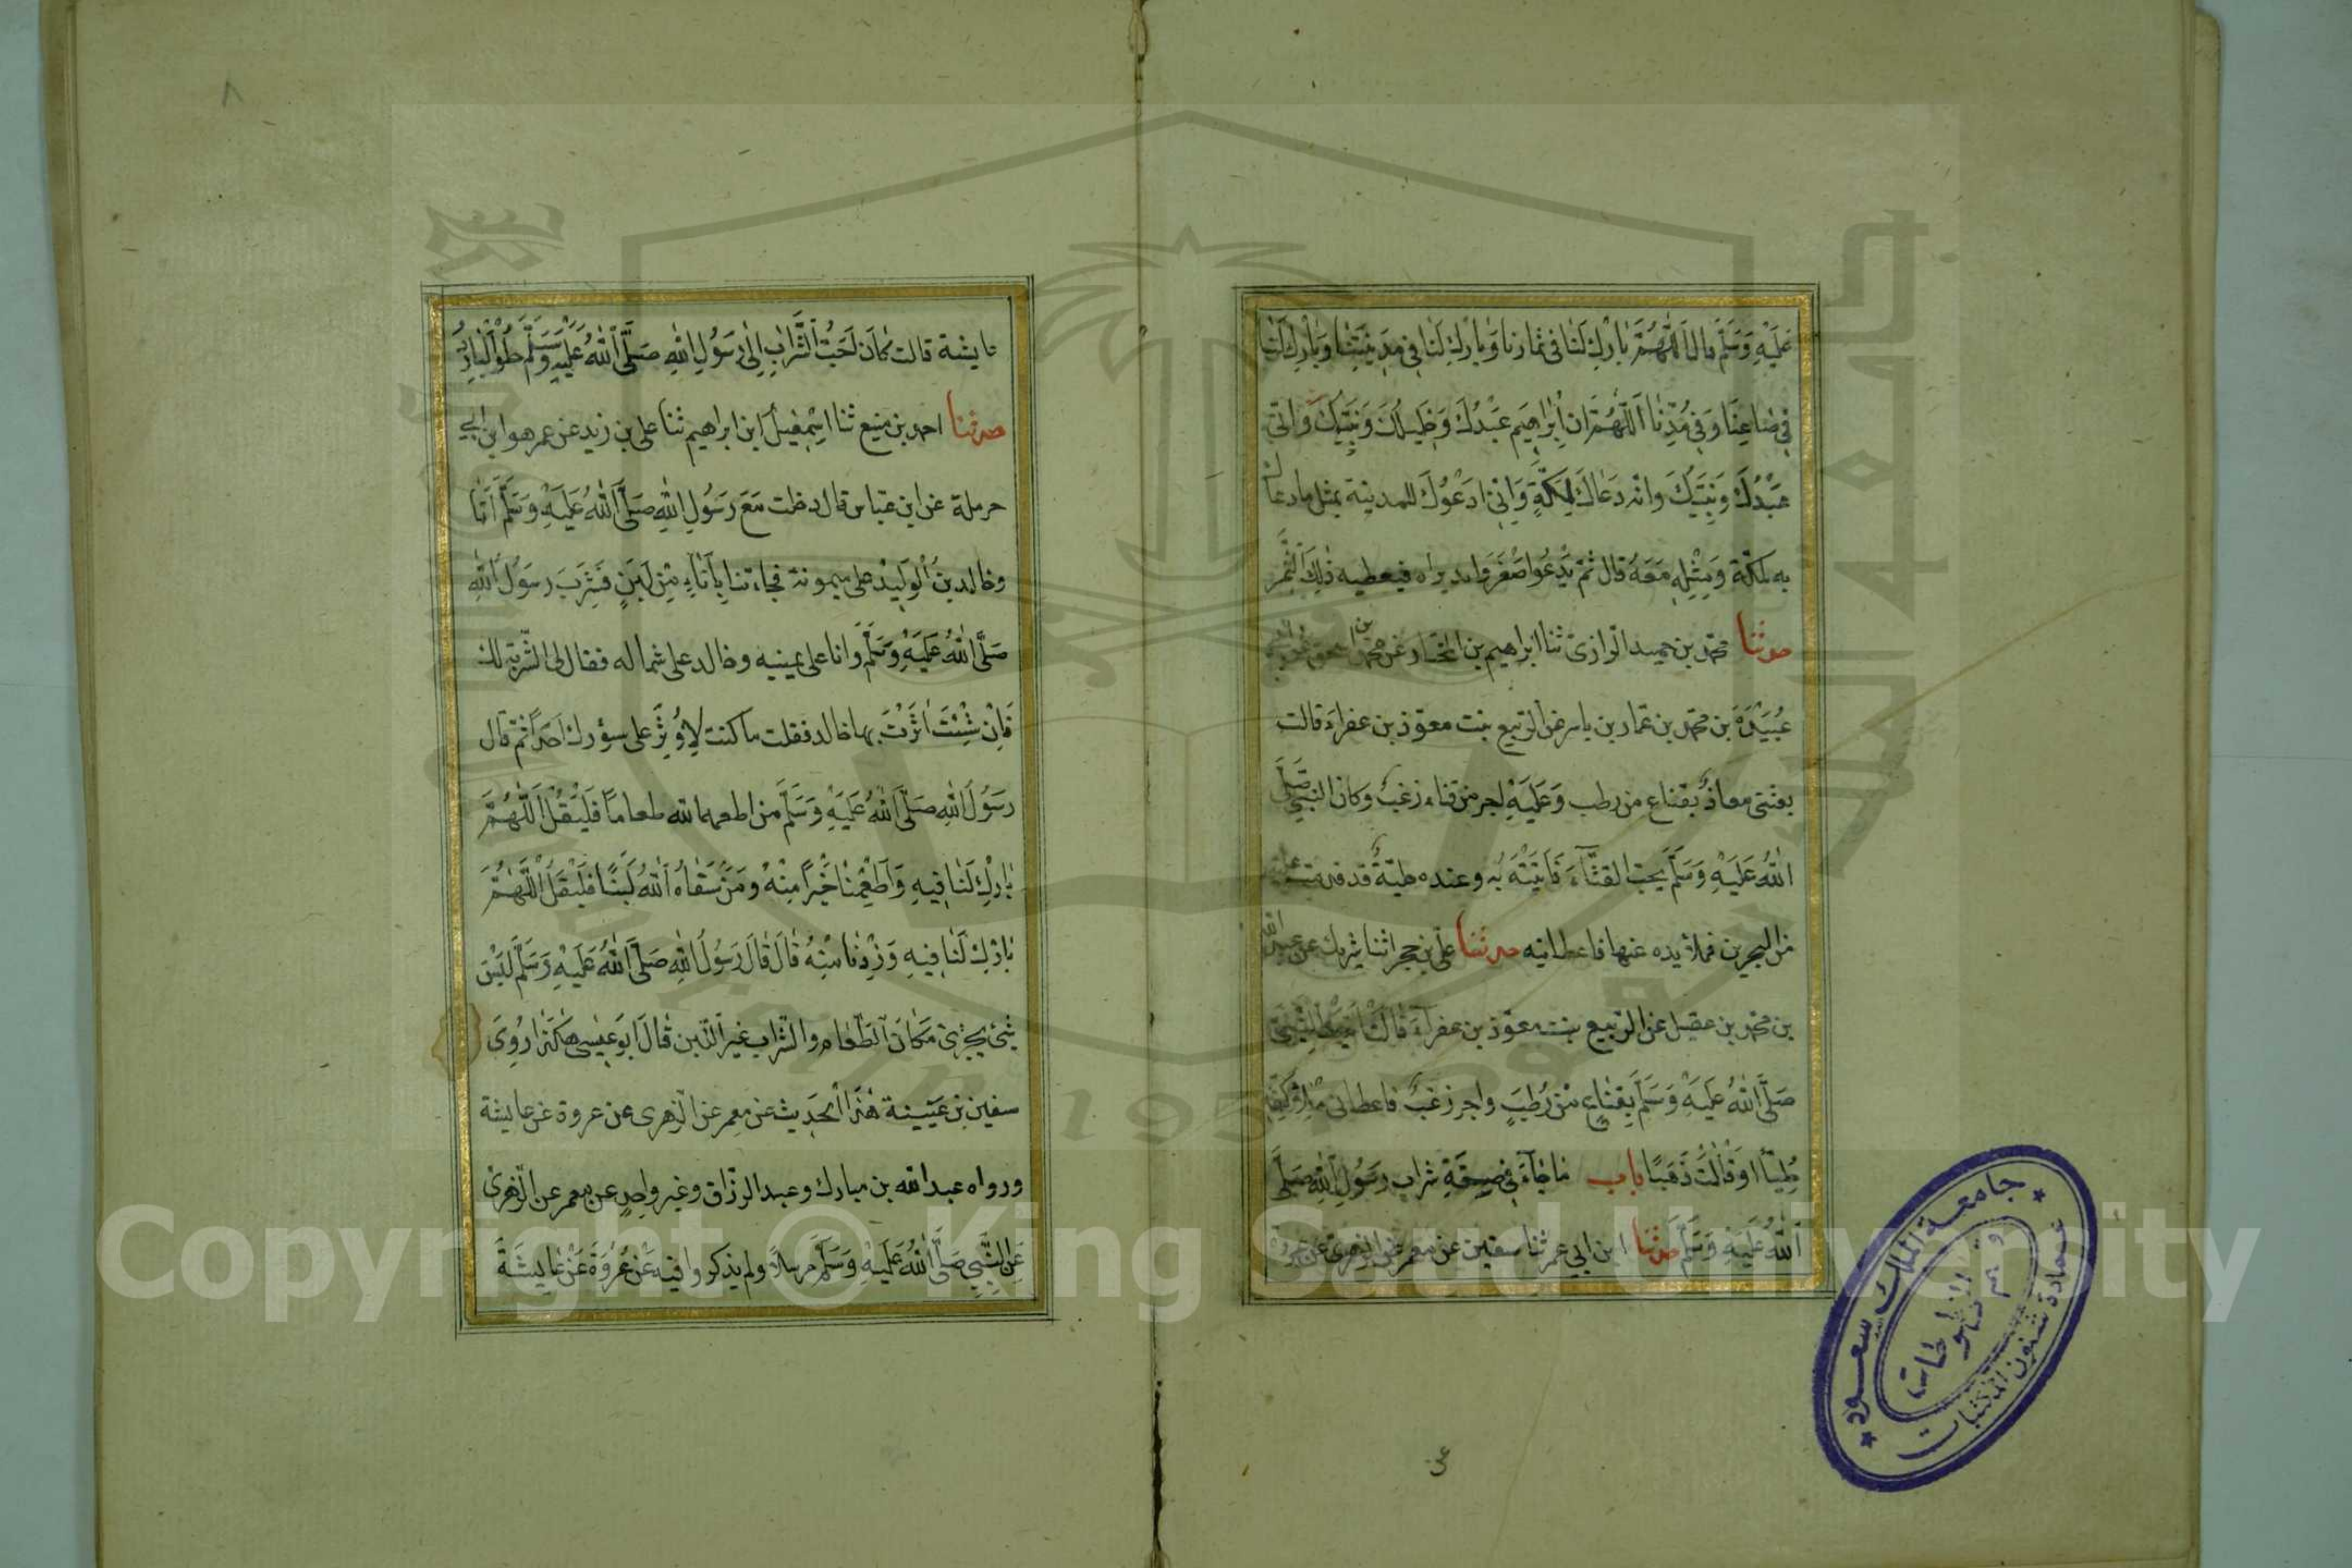 عَلَيْهِ وَسَلَّمَ قال اَللّٰهُمَّ بَارِكْ لَنَا فى ثمارنا وَبَارِكْ لَنَا فِى مَدِينَتِنَا وَبَارِكْ لَنَا
فِى صَاعِنَا وَفِى مُدِّنَا اَللّٰهُمَّ ان اِبْرَاهِيم عَبْدُكَ وَخَلِيلُكَ وَنَبِيُّكَ وانى
عَبْدُكَ وَنَبِيُّكَ وانه دَعَاكَ لِمَكَّةَ وَاِنِى ادعُوكَ للمدينة بمثل ما دعاك
به لمكة وَمِثْلِهِ مَعَهُ قال ثُمَّ يَدْعُوا صْغَرَ وليد يراه فيعطيه ذٰلِكَ الثَّمَر
حدثنا محمد بن حميد الرازى ثنا ابراهيم بن المختار عن محمد بن اسحق عن ابى
عُبَيْدَةَ بن محمد بن عمار بن ياسر عن الربيع بنت معوذ بن عفراء قالت
بعثنى معاذ بقناع من رطب وَعَلَيْهِ اجر من قثاء زغب وكان النبى صَلَّى
اللّٰهُ عَلَيْهِ وَسَلَّمَ يحب القثَّآءَ فَاَتَيْتُهُ بِه وعنده حلية قد قدمت عليه
من البحرين فملأ يده منها فاعطانيه حدثنا على بن حجر انثنا شريك عن عبد الله
بن محمد بن عقيل عن الربيع بنت معوذ بن عفرآءَ قالت اتيت النبى
صَلَّى اللّٰهُ عَلَيْهِ وَسَلَّمَ بِقِنَاعٍ مِنْ رُطَبٍ واجر زغب فاعطانى مِلْأَ كَفِّهِ
حُلِيًّا اوَ قَالَتْ ذَهَبًا باب مَا جَآءَ فى صِفَةِ شراب رَسُولِ اللّٰهِ صَلَّى
اللّٰهُ عَلَيْهِ وَسَلَّمَ حدثنا ابن ابى عمر ثنا سفين عن معمر عن الزهرى عن عروة
عن
٨
عايشة قالت كَانَ اَحَبُّ الشَّرَابِ اِلٰى رَسُولِ اللّٰهِ صَلَّى اللّٰهُ عَلَيْهِ وَسَلَّمَ حُلْوُ الْبَارِدُ
حدثنا احمد بن منيع ثنا اسْمٰعِيلُ ابن ابراهيم ثنا على بن زيد عن عمر هو ابن ابى
حرملة عن ابن عباس قال دخلت مَعَ رَسُولِ اللّٰهِ صَلَّى اللّٰهُ عَلَيْهِ وَسَلَّمَ اَنَا
وخالد بن الْوَلِيد على ميمونة فجاءتنا بِاِنَاءٍ مِنْ لَبَنٍ فَشَرِبَ رسَوُلُ اللّٰهِ
صَلَّى اللّٰهُ عَلَيْهِ وَسَلَّمَ وانا على يمينيه وخالد على شماله فقال لى الشربة لك
فَاِنْ شِئْتَ اٰثَرْتَ بها خالد فقلت ما كنت لِاُوثِرَ على سؤرك احدًا ثم قال
رسَوُلُ اللّٰهِ صَلَّى اللّٰهُ عَلَيْهِ وَسَلَّمَ من اطعمه الله طعاماً فَلْيَقُلْ اَللّٰهُمَّ
بَارِكْ لَنَا فِيهِ وَاَطْعِمْنَا خَيْرًا مِنْهُ وَمَنْ سَقَاهُ اللّٰهُ لَبَنًا فَلْيَقُلْ اَللّٰهُمَّ
بَارِكْ لَنَا فِيهِ وَزِدْنَا مِنْهُ قَالَ قَالَ رَسُولُ اللّٰهِ صَلَّى اللّٰهُ عَلَيْهِ وَسَلَّمَ لَيْسَ
شَئ يجزئ مَكَانَ الطَّعَام والشراب غير اللبن قَالَ ابوَ عِيسى هٰكَذَا رَوٰى
سفين بن عيينة هٰذَا الْحَدِيث عن معمر عن الزهرى عن عروة عن عايشة
ورواه عبد الله بن مبارك وعبد الرزاق وغير واحِدٍ عن معمر عن الزهرى
عَنِ النَّبِىِّ صَلَّى اللّٰهُ عَلَيْهِ وَسَلَّمَ مرسلاً ولم يذكروا فيه عَنْ عُرْوَةَ عَنْ عَايشَةَ
جامعة الملك سعود
عمادة شئون المكتبات
قسم المخطوطات
Copyright © King Saud University
1957